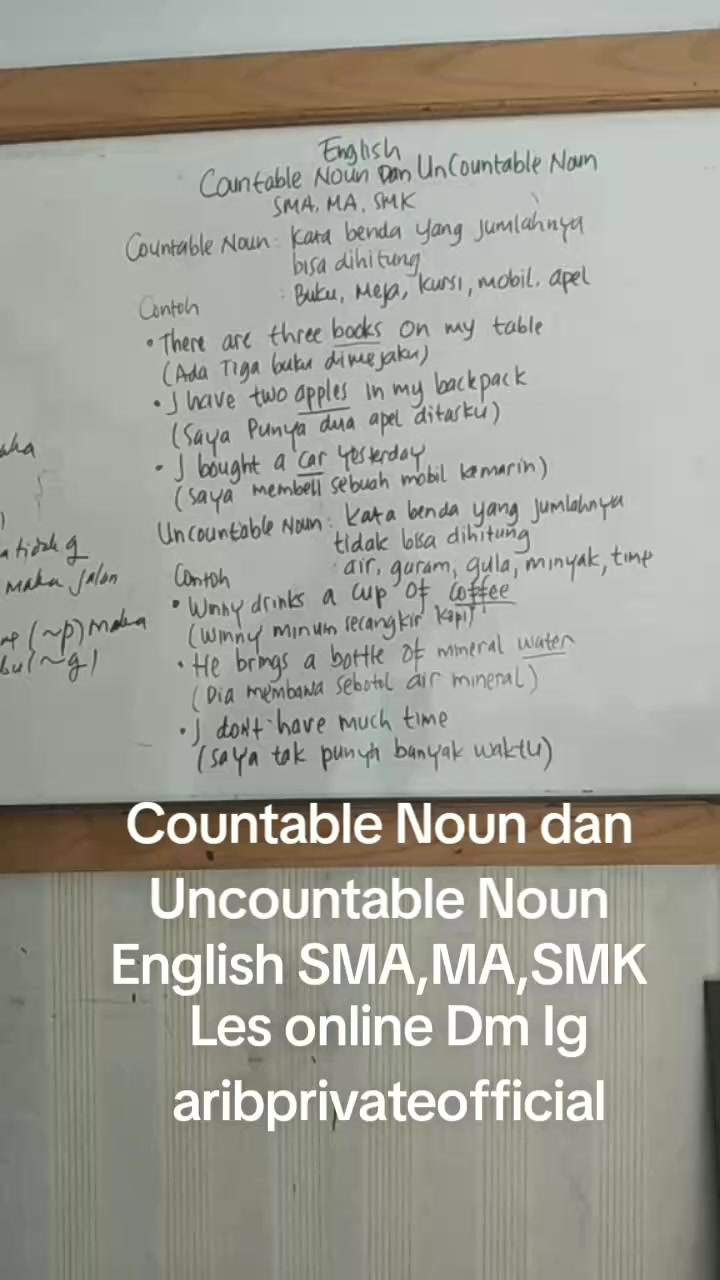 English
Countable Noun Dan UnCountable Noun
SMA, MA, SMK
Countable Noun : Kata benda yang jumlahnya
bisa dihitung
: Buku, Meja, kursi, mobil, apel
Contoh
• There are three books on my table
(Ada Tiga buku dimejaku)
• I have two apples in my backpack
(Saya Punya dua apel ditasku)
• I bought a car yesterday
(saya membeli sebuah mobil kemarin)
Uncountable Noun : Kata benda yang jumlahnya
tidak bisa dihitung
: air, garam, gula, minyak, time
Contoh
• Winny drinks a cup of coffee
(Winny minum secangkir kopi)
• He brings a bottle of mineral water
(Dia membawa sebotol air mineral)
• I don't have much time
(saya tak punya banyak waktu)
a tidak q
maka jalan
(~p) maka
(~q)
Countable Noun dan
Uncountable Noun
English SMA,MA,SMK
Les online Dm Ig
aribprivateofficial